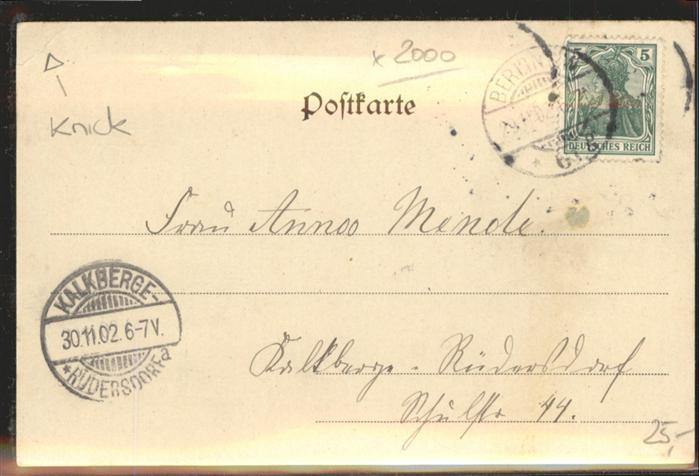 x 2000
Knick
Postkarte
BERLIN
5 5
DEUTSCHES REICH
Frau Anna Mende.
KALKBERGE-
30.11.02. 6-7V.
*RÜDERSDORF a
Kalkberge - Rüdersdorf
Schulstr 44.
25,-